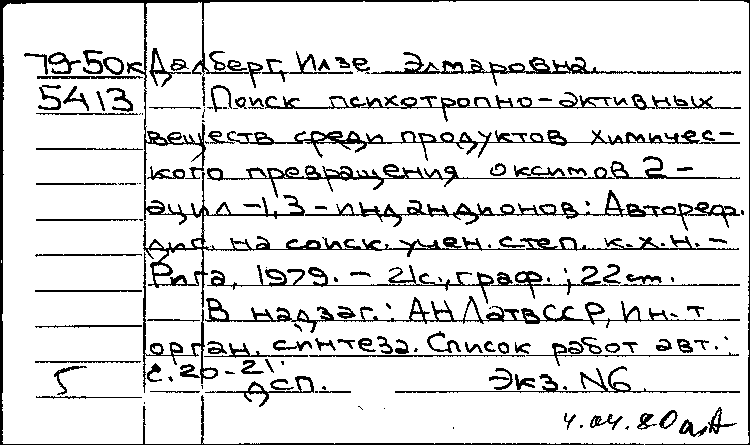 79-50к Далберг, Илзе Элмаровна.
5413 Поиск психотропно-активных
веществ среди продуктов химичес-
кого превращения оксимов 2-
ацил-1,3-индандионов: Автореф.
дис. на соиск. учен. степ. к.х.н. -
Рига, 1979. - 21с., граф.; 22 см.
В надзаг.: АН ЛатвССР, Ин-т
орган. синтеза. Список работ авт.:
с. 20-21.
5 ДСП. Экз. N6.
4.04.80